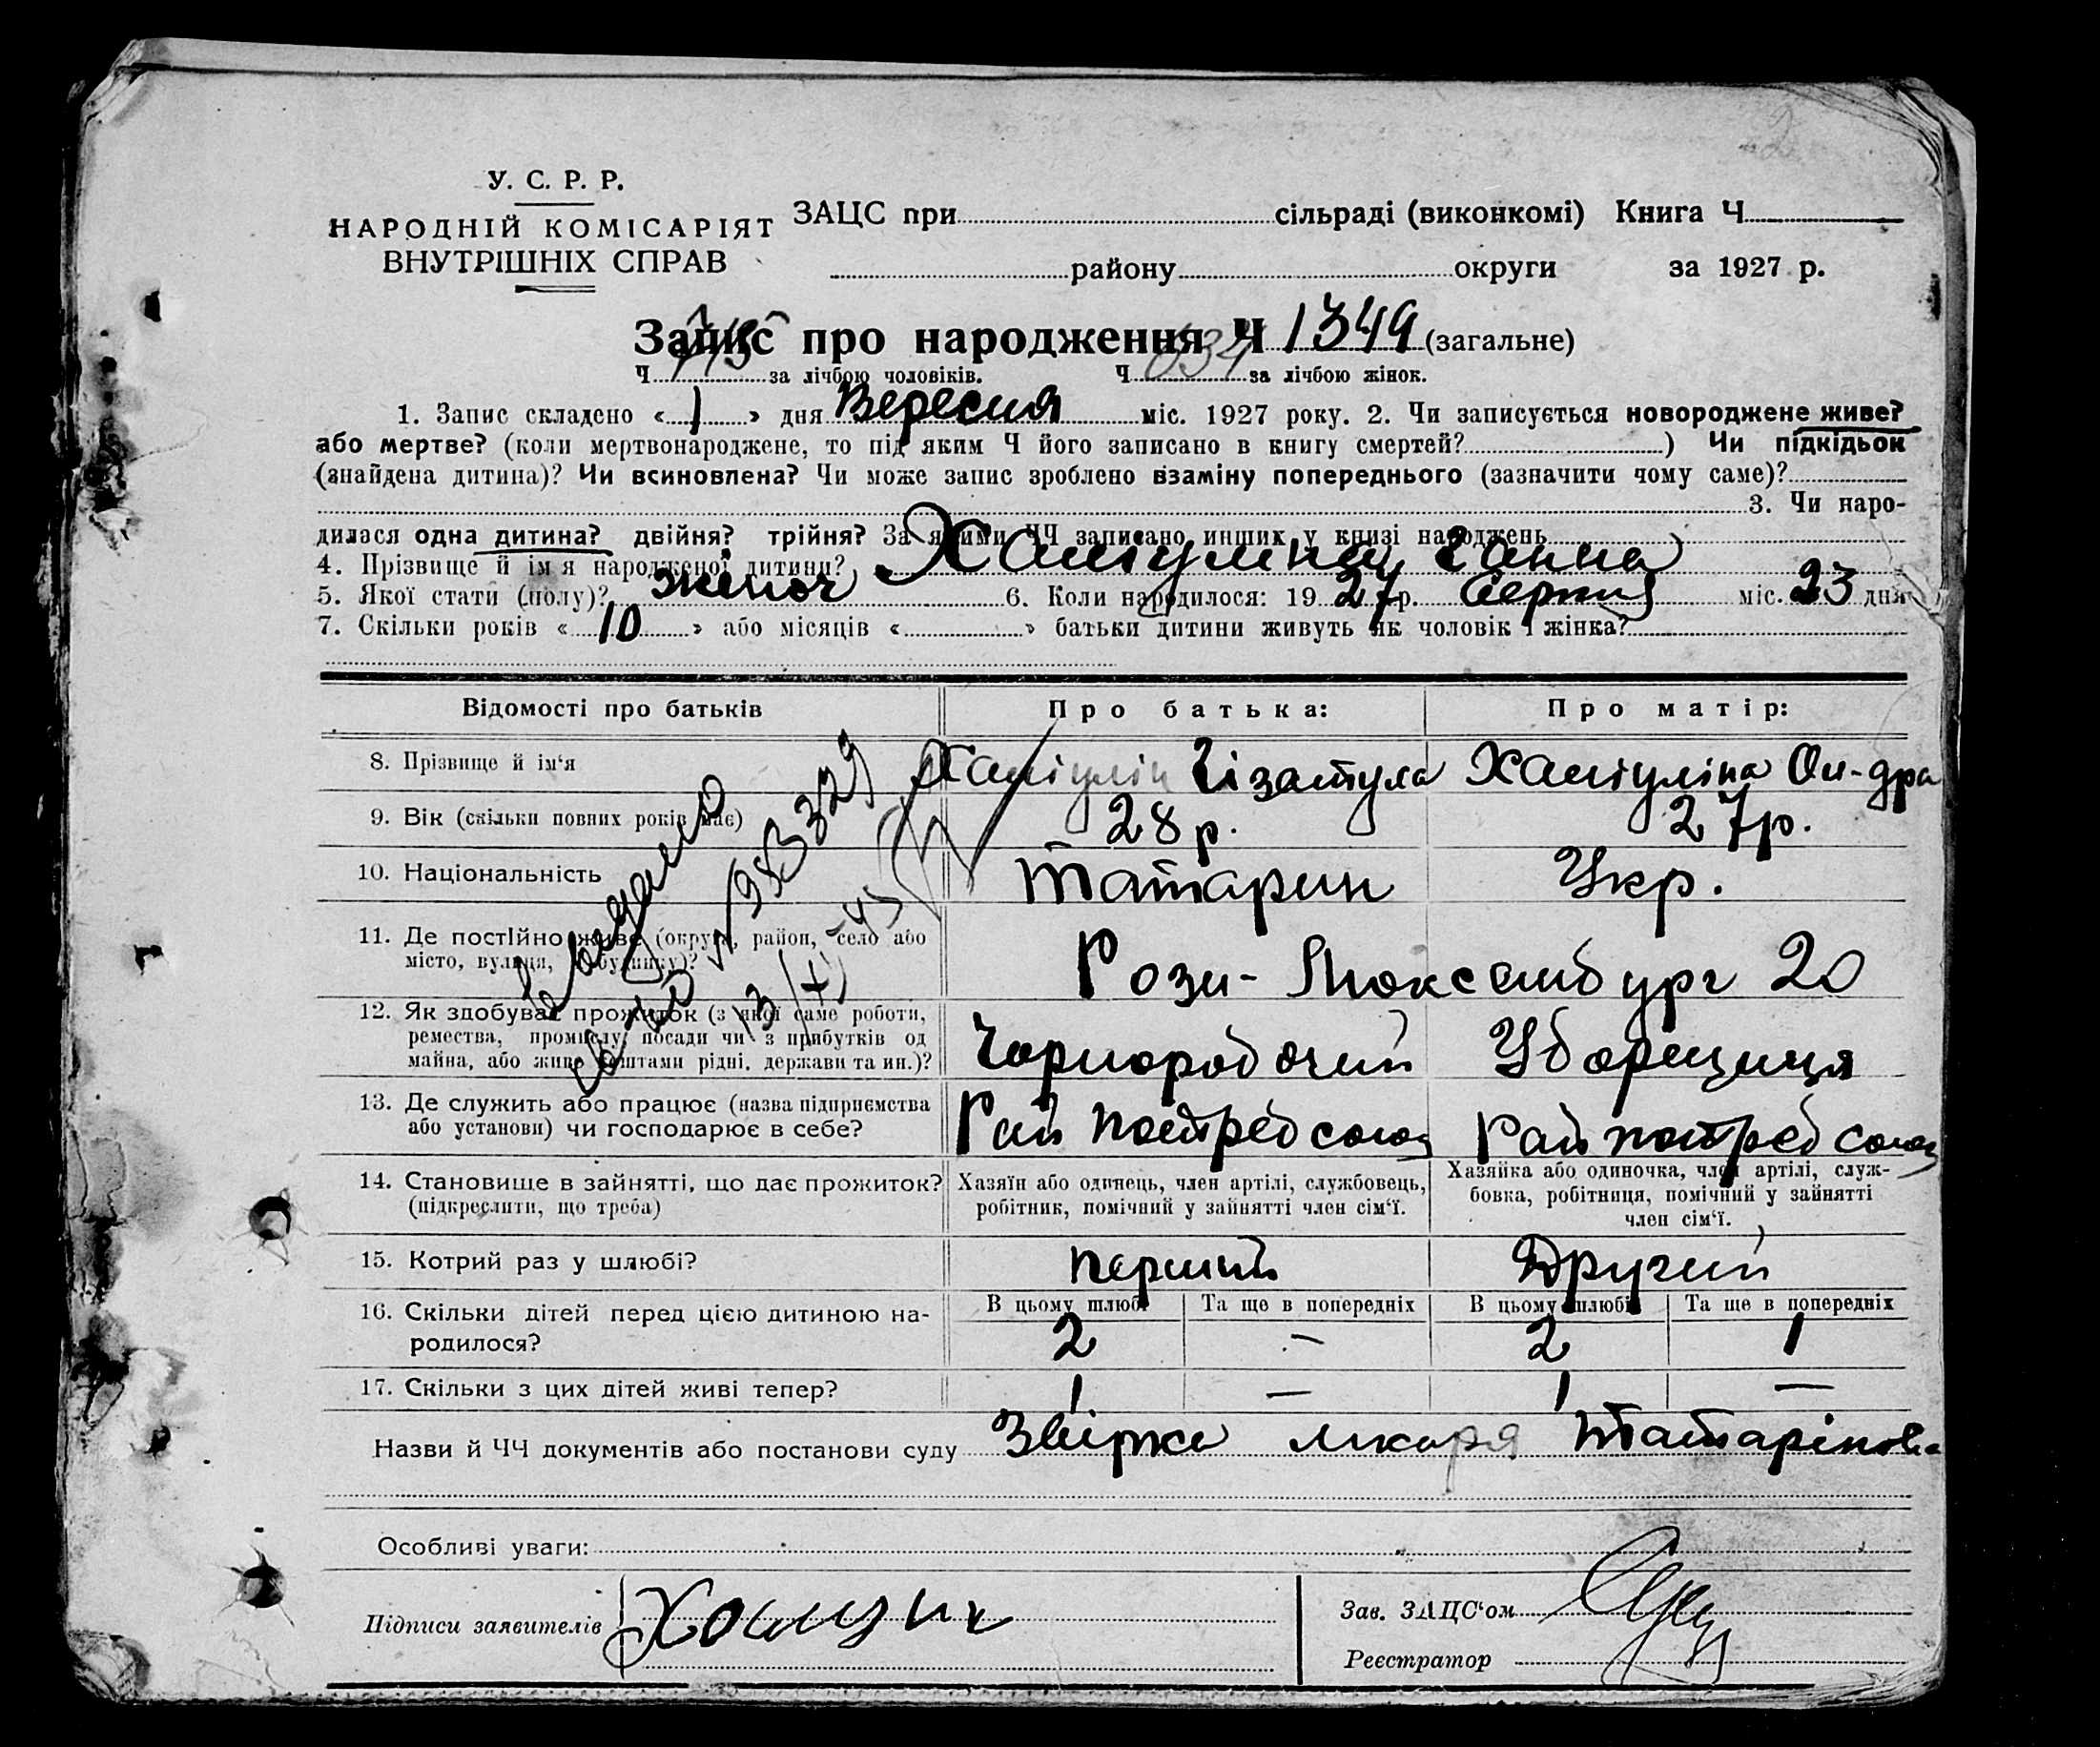 У. С. Р. Р.
НАРОДНІЙ КОМІСАРІЯТ
ВНУТРІШНІХ СПРАВ
ЗАЦС при сільраді (виконкомі) Книга Ч.
району округи за 1927 р.
Запис про народження Ч 1349 (загальне)
Ч за лічбою чоловіків. Ч 634 за лічбою жінок.
1. Запис складено « 1 » дня Вересня міс. 1927 року. 2. Чи записується новороджене живе?
або мертве? (коли мертвонароджене, то під яким Ч його записано в книгу смертей? ) Чи підкідьок
(знайдена дитина)? Чи всиновлена? Чи може запис зроблено взаміну попереднього (зазначити чому саме)?
3. Чи наро-
дилася одна дитина? двійня? трійня? За якими ЧЧ записано инших у книзі народжень
4. Прізвище й ім'я народженої дитини? Ханіуліна Ганна
5. Якої стати (полу)? жіноч 6. Коли народилося: 19 27 р. Серпня міс. 23 дня
7. Скільки років « 10 » або місяців « » батьки дитини живуть як чоловік і жінка?
Відомості про батьків Про батька: Про матір:
8. Прізвище й ім'я Ханіулін Гізатула Ханіуліна
9. Вік (скільки повних років має) 28 р. 27 р.
10. Національність Татарин Укр.
11. Де постійно живе (округа, район, село або
місто, вулиця, будинку)? Рози-Люксембург 20
12. Як здобуває прожиток (з якої саме роботи,
ремества, промислу, посади чи з прибутків од
майна, або живе коштами рідні, держави та ин.)? Чорноробочий Уборщиця
13. Де служить або працює (назва підприємства
або установи) чи господарює в себе? Рай потребсоюз Рай потребсоюз
14. Становище в зайнятті, що дає прожиток?
(підкреслити, що треба)
Хазяїн або одинець, член артілі, службовець,
робітник, помічний у зайнятті член сім'ї.
Хазяйка або одиночка, член артілі, служ-
бовка, робітниця, помічний у зайнятті
член сім'ї.
15. Котрий раз у шлюбі? перший Другий
16. Скільки дітей перед цією дитиною на-
родилося?
В цьому шлюбі Та ще в попередніх В цьому шлюбі Та ще в попередніх
2 – 2 1
17. Скільки з цих дітей живі тепер? 1 – 1 –
Назви й ЧЧ документів або постанови суду Звірка лікаря Татарінова
Особливі уваги:
Підписи заявителів
Зав. ЗАЦС'ом
Реєстратор